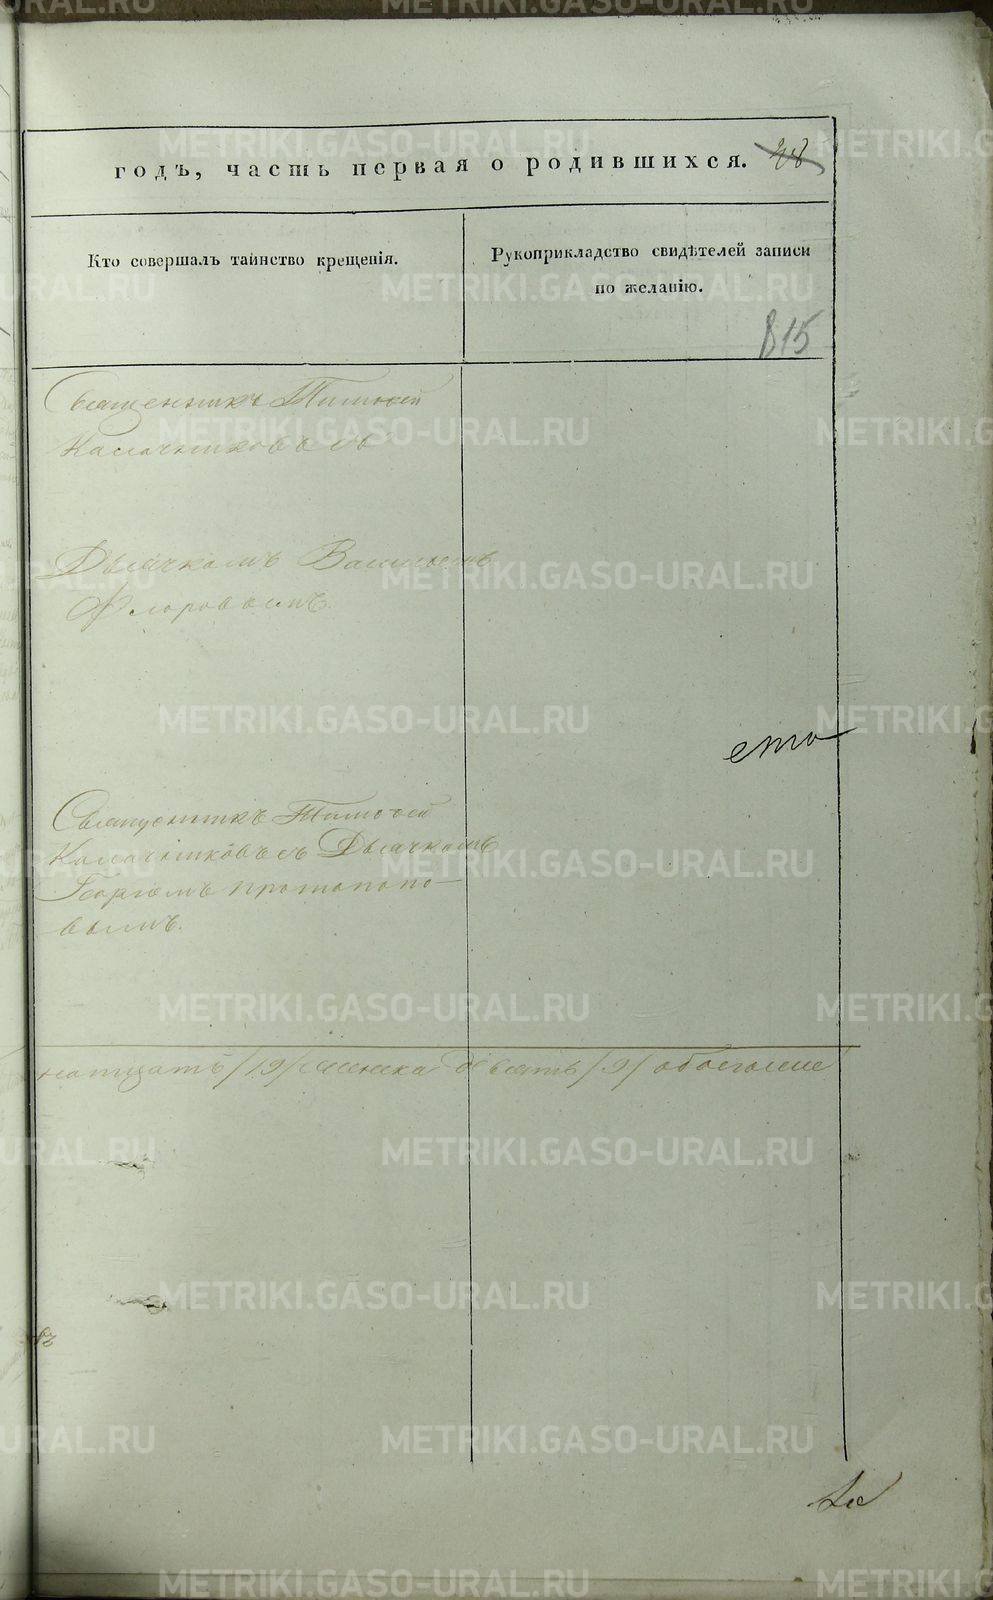 METRIKI.GASO-URAL.RU
годъ, часть первая о родившихся.
Кто совершалъ таинство крещенія.
Рукоприкладство свидѣтелей записи
по желанію.
815
Священникъ Тимофей
Калачниковъ съ
Дьячкомъ Васильемъ
Флоровымъ.
ето
Священникъ Тимофей
Калачниковъ съ Дьячкомъ
Георгіемъ Протопопо-
вымъ.
натцать /19/ женска девять /9/ обоегоже